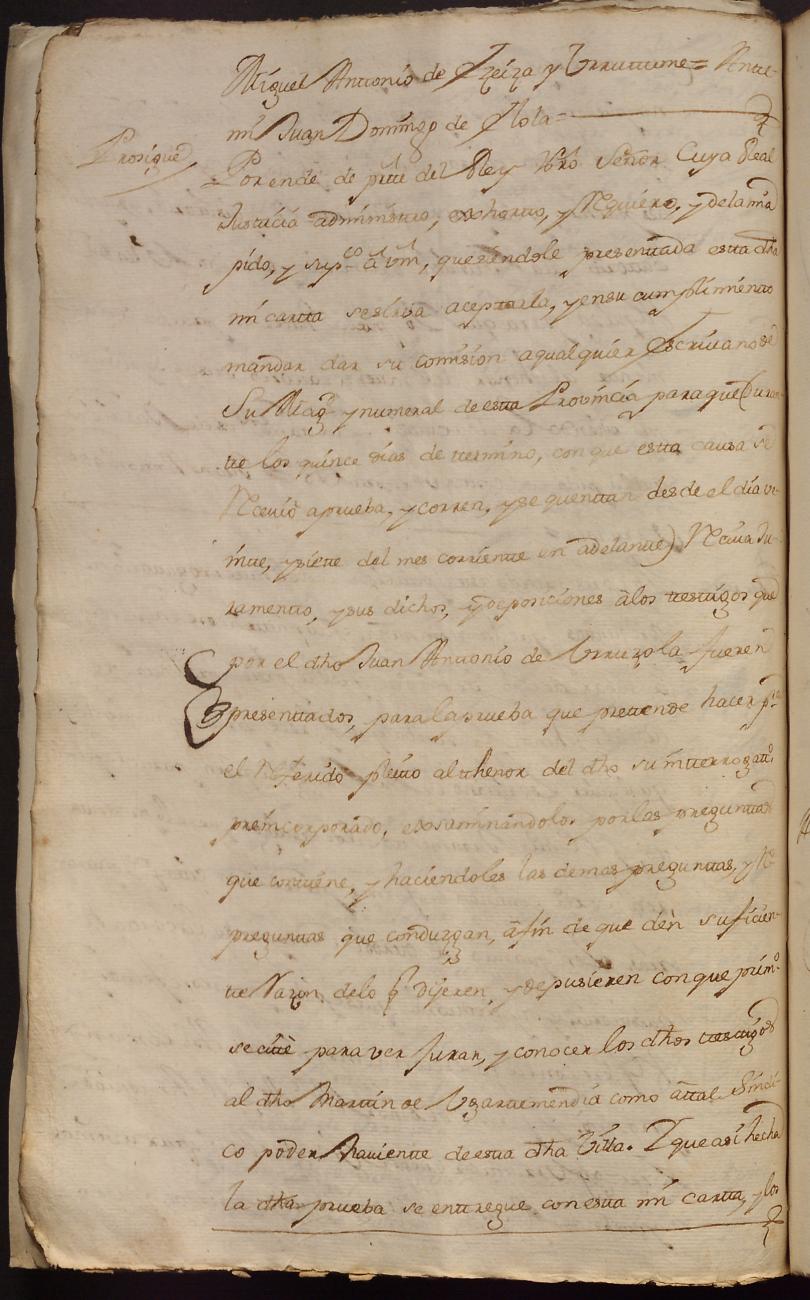 Miguel Antonio de Yzeiza y Urruttume = Antte
mi Juan Domingo de Olota =
Prosigue
Por ende de ptte del Rey Nro Señor Cuya Real
Justicia administro, exshortto, y Requiero, y dela mia
pido, y supco â Vm, que siendole presenttada estta dha
mi cartta se sirva acepttarla, y en su cumplimientto
mandar dar su Comision a qualquier Escrivano de
Su Magd y numeral de estta Provincia para que (duran-
tte los quince dias de ttermino, con que estta causa se
Recivió a prueba, y corren, y se quenttan desde el dia ve-
intte, y siette del mes corrientte en adelantte) Reciva Ju-
ramentto, y sus dichos, y deposiciones â los ttesttigos que
por el dho Juan Anttonio de Urruzola fueren
presenttados, para la prueba que prettende hacer pa
el Referido pleitto al tthenor del dho su intterrogatto
preincorporado, exsaminandolos por las pregunttas
que conviene, y haciendoles las demas pregunttas, y Re-
pregunttas que conduzgan, â fin de que dèn suficien-
tte Razon delo q dijeren, y depusieren con que primo
se cittè para ver Jurar, y conocer los dhos ttesttigos
al dho Marttin de Ugarttemendia como âttal Sindi-
co poder havientte de estta dha Villa. Y que asi hecha
la dha prueba se enttregue con estta mi cartta, y los